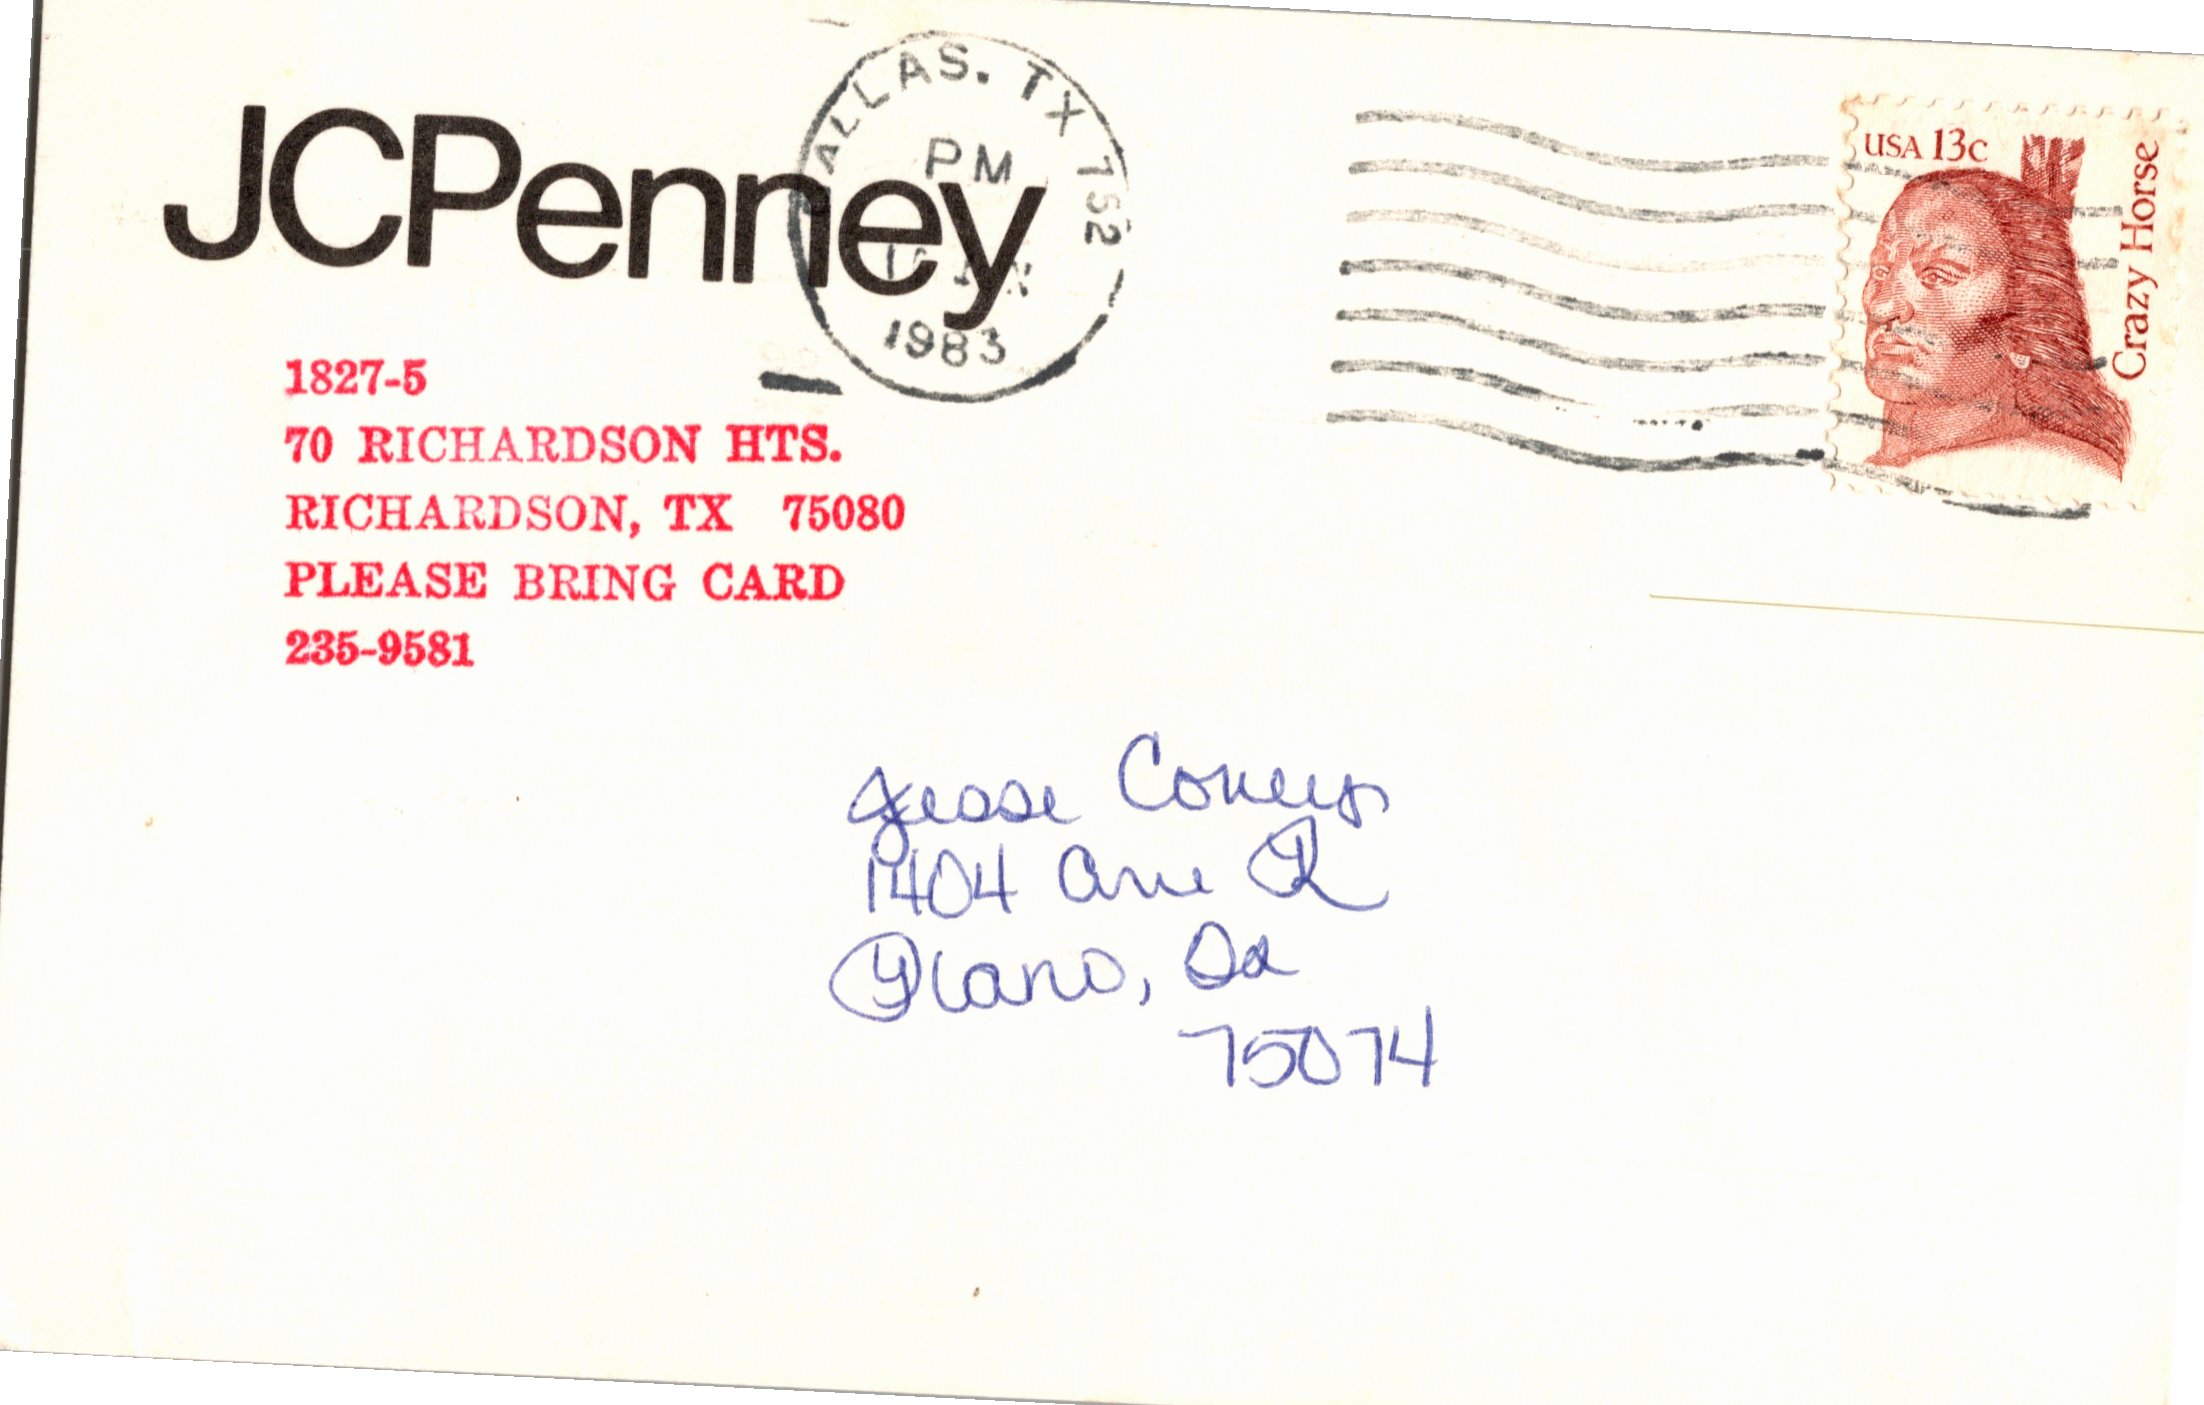 JCPenney
ALLAS. TX 752
PM
1983
USA 13c
Crazy Horse
1827-5
70 RICHARDSON HTS.
RICHARDSON, TX 75080
PLEASE BRING CARD
235-9581
Jesse Coney
1404 Ave R
Plano, Tx
75074